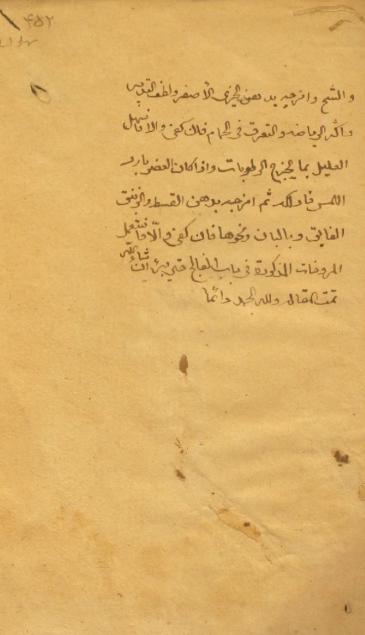 والشح وامزجيه بدهن الخيرى الأصفر والطف التدبير
واكثر الرياضه والتعرق فى الحمام فان كفى والا فاسهل
العليل بما يخرج الرطوبات واذا كان العضو بارد
اللمس فادلكه ثم امزجيه بدهن القسط والزنبق
الفايق وبالبان ونحوها فان كفى والا فاستعمل
المروخات المذكورة فى باب الفالج حتى يبرئ ان شاء الله
تمت المقاله ولله الحمد دائما